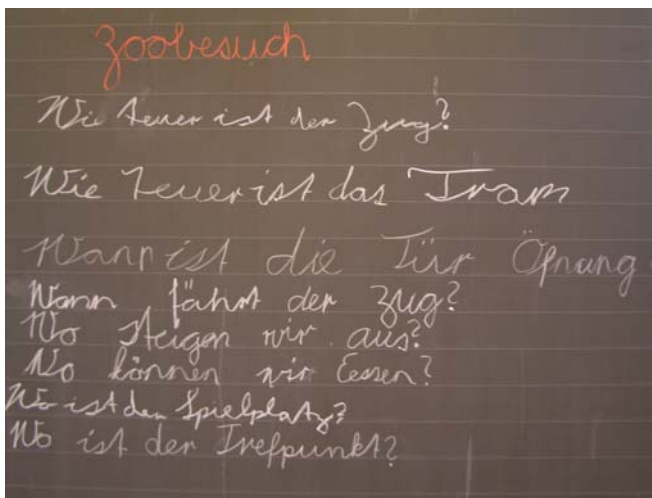 Zoobesuch
Wie teuer ist der Zug?
Wie teuer ist das Tram
Wann ist die Tür Öfnung
Wann fährt der Zug?
Wo steigen wir aus?
Wo können wir Eessen?
Wo ist den Spielplatz?
Wo ist der Trefpunkt?